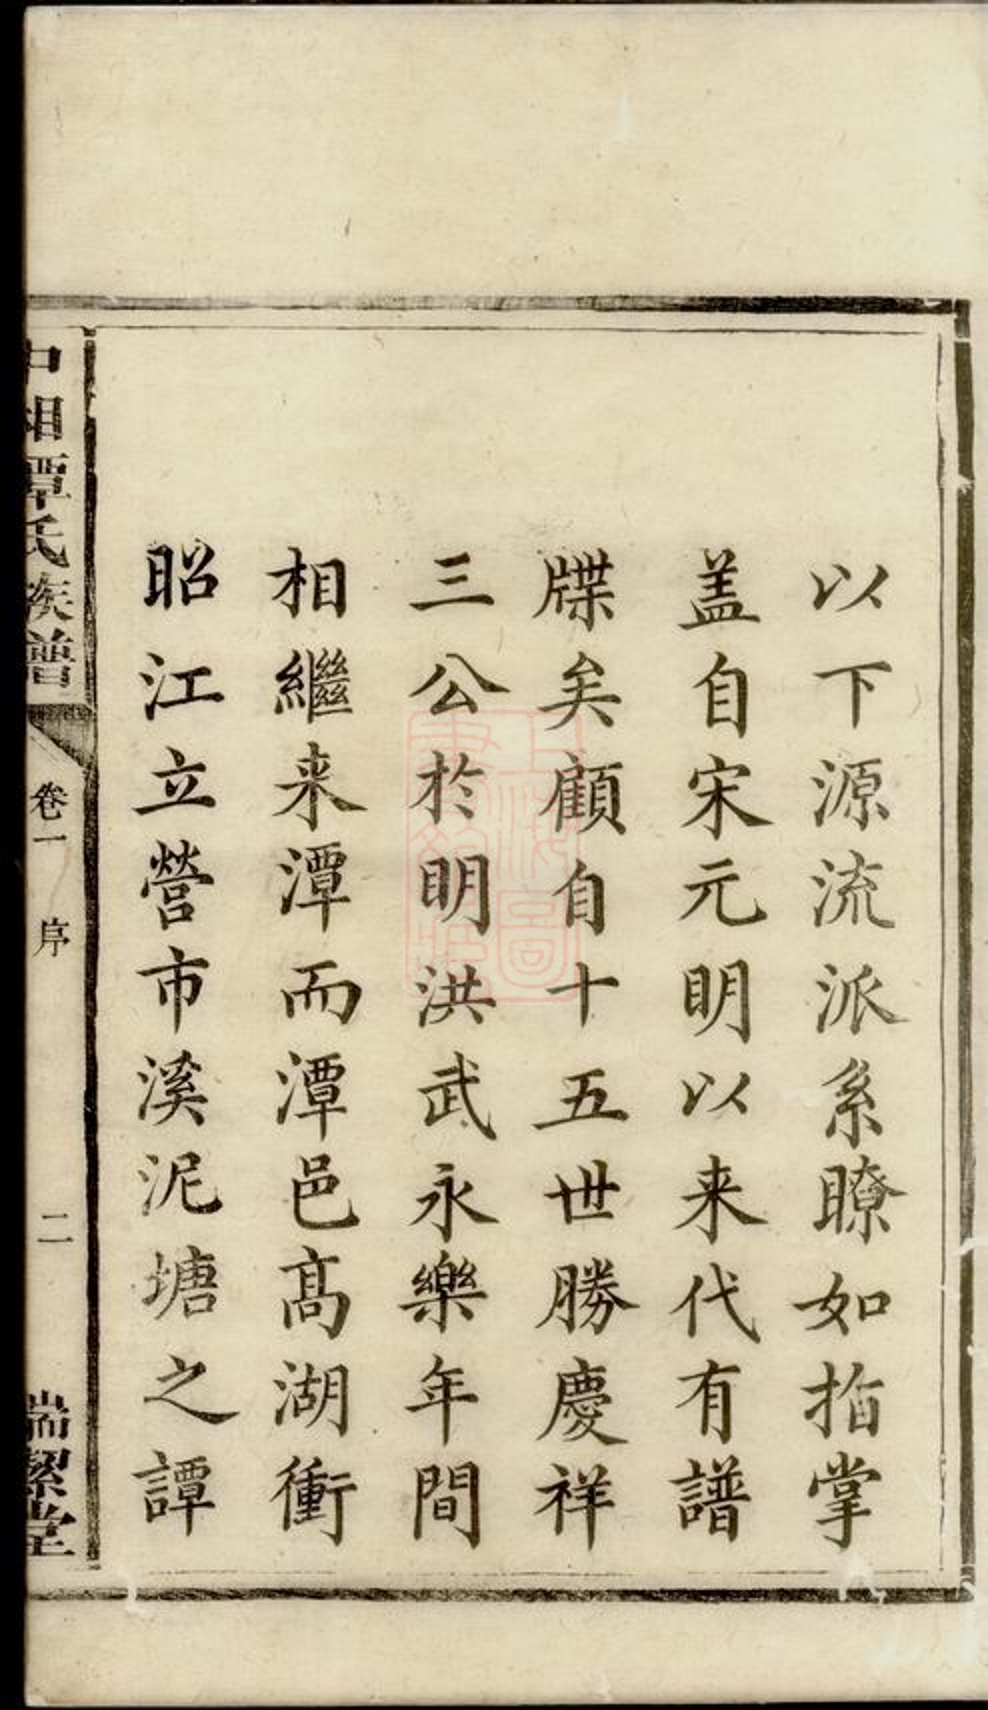 以下源流派系瞭如指掌
盖自宋元明以来代有譜
牒矣顧自十五世勝慶祥
三公於明洪武永樂年間
相繼来潭而潭邑髙湖衝
昭江立營市溪泥塘之譚
中湘譚氏族譜
卷一
序
二
端絜堂
上海圖書館藏